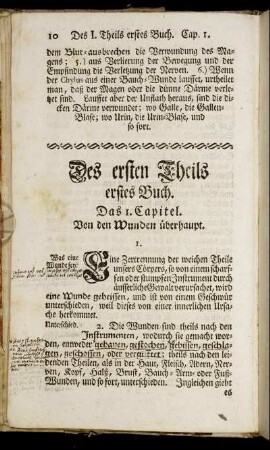 10 Des I. Theils erstes Buch. Cap. 1.
dem Blut-ausbrechen die Verwundung des Ma-
gens; 5.) aus Verlierung der Bewegung und der
Empfindung die Verletzung der Nerven. 6.) Wenn
der Chylus aus einer Bauch-Wunde lauffet, urtheilet
man, daß der Magen oder die dünne Därme verle-
tzet sind. Lauffet aber der Unflath heraus, sind die di-
cken Därme verwundet; wo Galle, die Gallen-
Blase; wo Urin, die Urin-Blase, und
so fort.
Des ersten Theils
erstes Buch.
Das 1. Capitel.
Von den Wunden überhaupt.
1.
Was eine
Wunde sey.
Eine Zertrennung der weichen Theile
unsers Cörpers, so von einem scharf-
fen oder stumpfen Instrument durch
äusserliche Gewalt verursachet, wird
eine Wunde geheissen, und ist von einem Geschwür
unterschieden, weil dieses von einer innerlichen Ursa-
che herkommet.
Unterschied.
2. Die Wunden sind theils nach den
Instrumenten, wodurch sie gemacht wor-
den, entweder gehauen, gestochen, gebissen, geschla-
gen, geschossen, oder vergifftet; theils nach den lei-
denden Theilen, als in der Haut, Fleisch, Adern, Ner-
ven, Kopf, Halß, Brust, Bauch-Arm- oder Fuß-
Wunden, und so fort, unterschieden. Zugleichen giebt
es